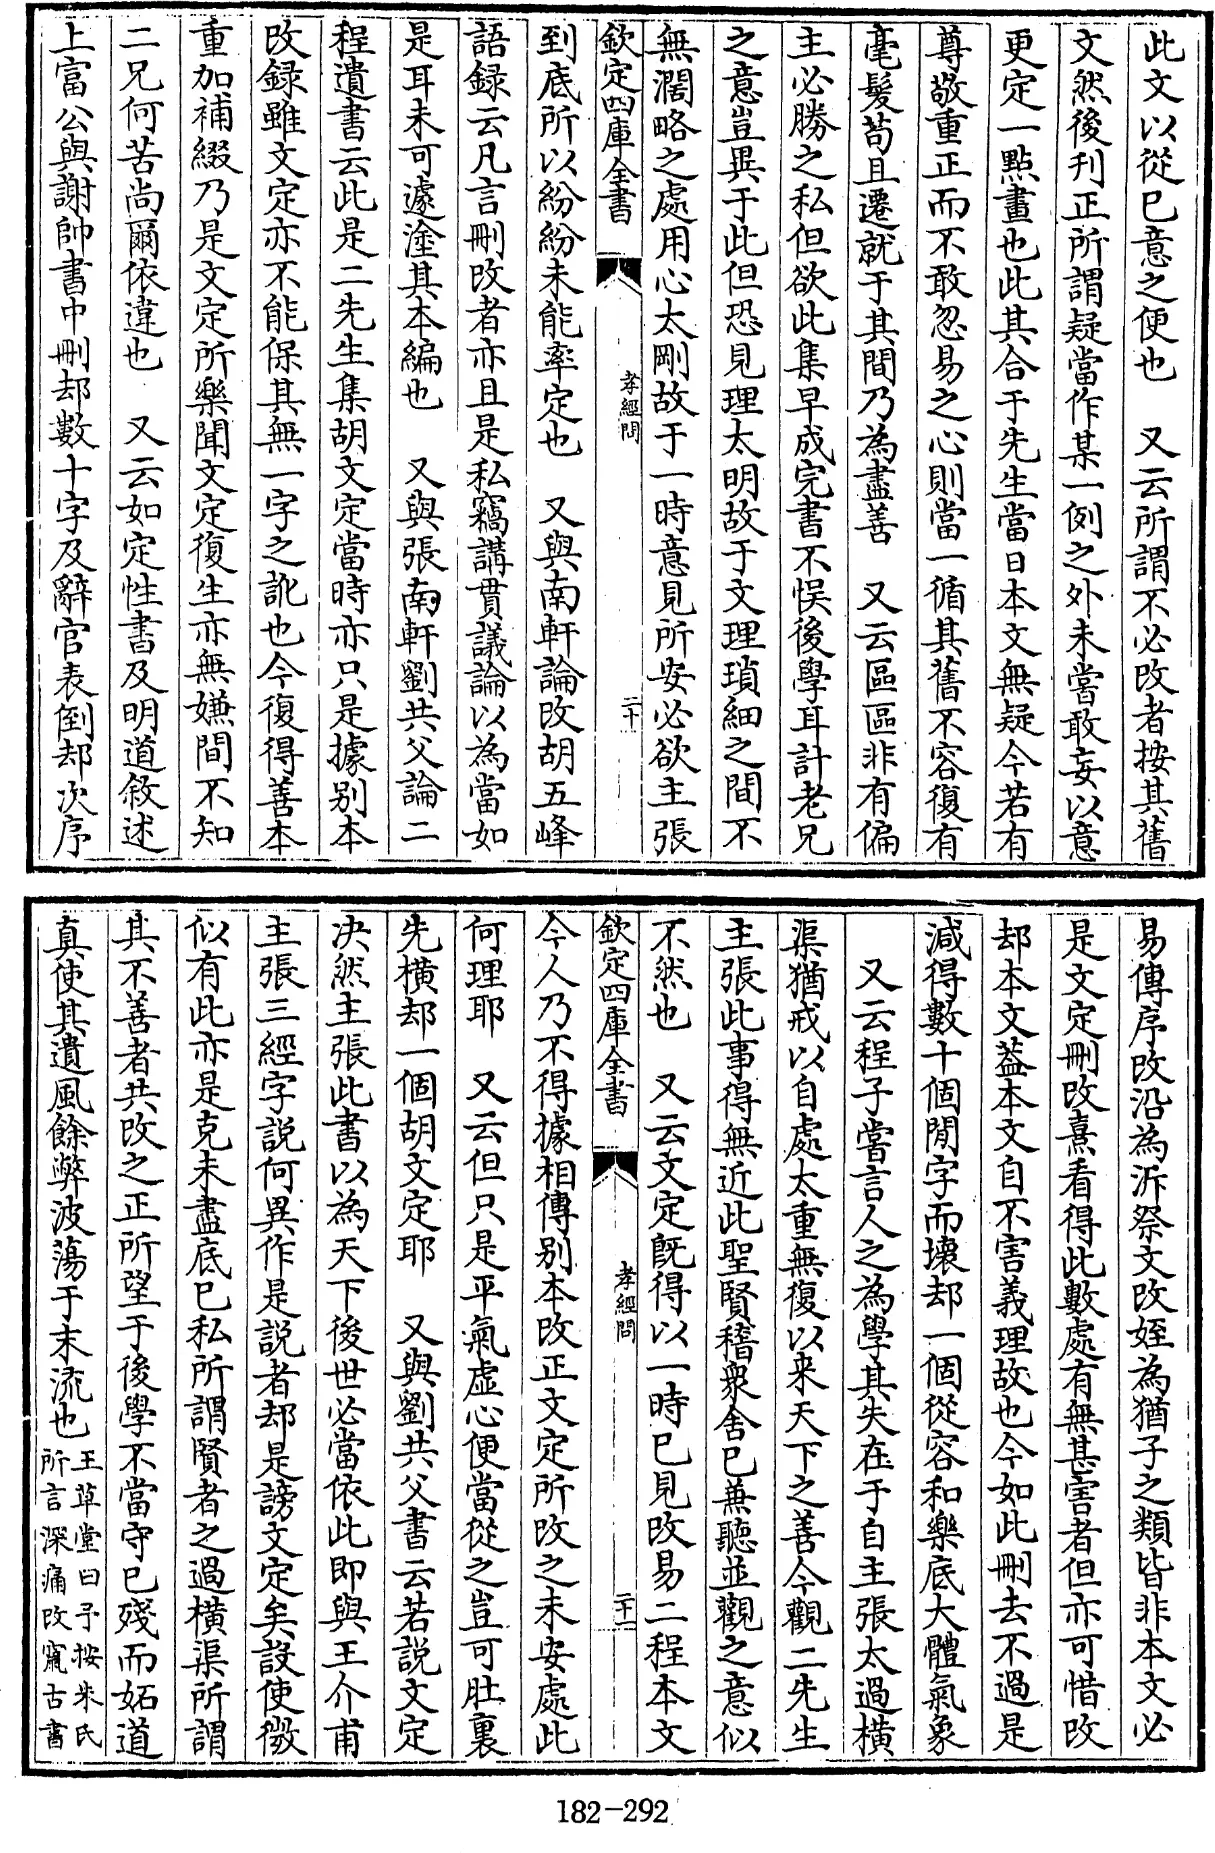 此文以從已意之便也　又云所謂不必改者按其舊
文然後刋正所謂疑當作某一例之外未嘗敢妄以意
更定一點畫也此其合于先生當日本文無疑今若有
尊敬重正而不敢忽易之心則當一循其舊不容復有
毫髮苟且遷就于其間乃為盡善　又云區區非有偏
主必勝之私但欲此集早成完書不悮後學耳計老兄
之意豈異于此但恐見理太明故于文理瑣細之間不
無濶略之處用心太剛故于一時意見所安必欲主張
欽定四庫全書
孝經問
二十
到底所以紛紛未能率定也　又與南軒論改胡五峰
語録云凡言刪改者亦且是私竊講貫議論以為當如
是耳未可遽塗其本編也　又與張南軒劉共父論二
程遺書云此是二先生集胡文定當時亦只是據别本
改録雖文定亦不能保其無一字之訛也今復得善本
重加補綴乃是文定所樂聞文定復生亦無嫌間不知
二兄何苦尚爾依違也　又云如定性書及明道敘述
上富公與謝帥書中刪却數十字及辭官表倒却次序
易傳序改沿為泝祭文改姪為猶子之類皆非本文必
是文定刪改熹看得此數處有無甚害者但亦可惜改
却本文葢本文自不害義理故也今如此刪去不過是
減得數十個閒字而壞却一個從容和樂底大體氣象
又云程子嘗言人之為學其失在于自主張太過橫
渠猶戒以自處太重無復以来天下之善今觀二先生
主張此事得無近此聖賢稽衆舍已兼聽並觀之意似
不然也　又云文定既得以一時已見改易二程本文
欽定四庫全書
孝經問
二十一
今人乃不得據相傳别本改正文定所改之未安處此
何理耶　又云但只是平氣虚心便當從之豈可肚裏
先橫却一個胡文定耶　又與劉共父書云若說文定
决然主張此書以為天下後世必當依此即與王介甫
主張三經字說何異作是説者却是謗文定矣設使微
似有此亦是克未盡底已私所謂賢者之過橫渠所謂
其不善者共改之正所望于後學不當守已殘而妬道
真使其遺風餘弊波蕩于末流也王草堂曰予按朱氏
所言深痛改竄古書
182-292